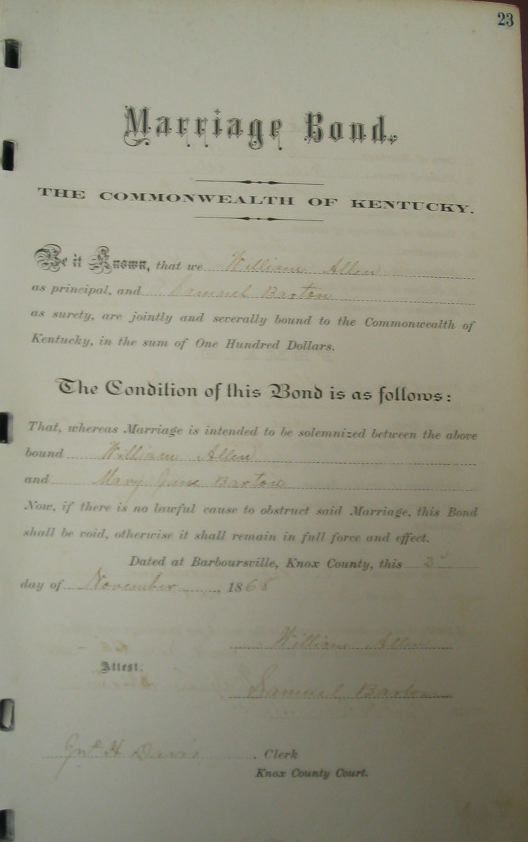 23
Marriage Bond.
THE COMMONWEALTH OF KENTUCKY.
Be it Known, that we William Allen
as principal, and Samuel Barton
as surety, are jointly and severally bound to the Commonwealth of
Kentucky, in the sum of One Hundred Dollars.
The Condition of this Bond is as follows:
That, whereas Marriage is intended to be solemnized between the above
bound William Allen
and Mary Jane Barton
Now, if there is no lawful cause to obstruct said Marriage, this Bond
shall be void, otherwise it shall remain in full force and effect.
Dated at Barboursville, Knox County, this
day of November, 1868
William Allen
Attest:
Samuel Barton
H Davis. Clerk
Knox County Court.